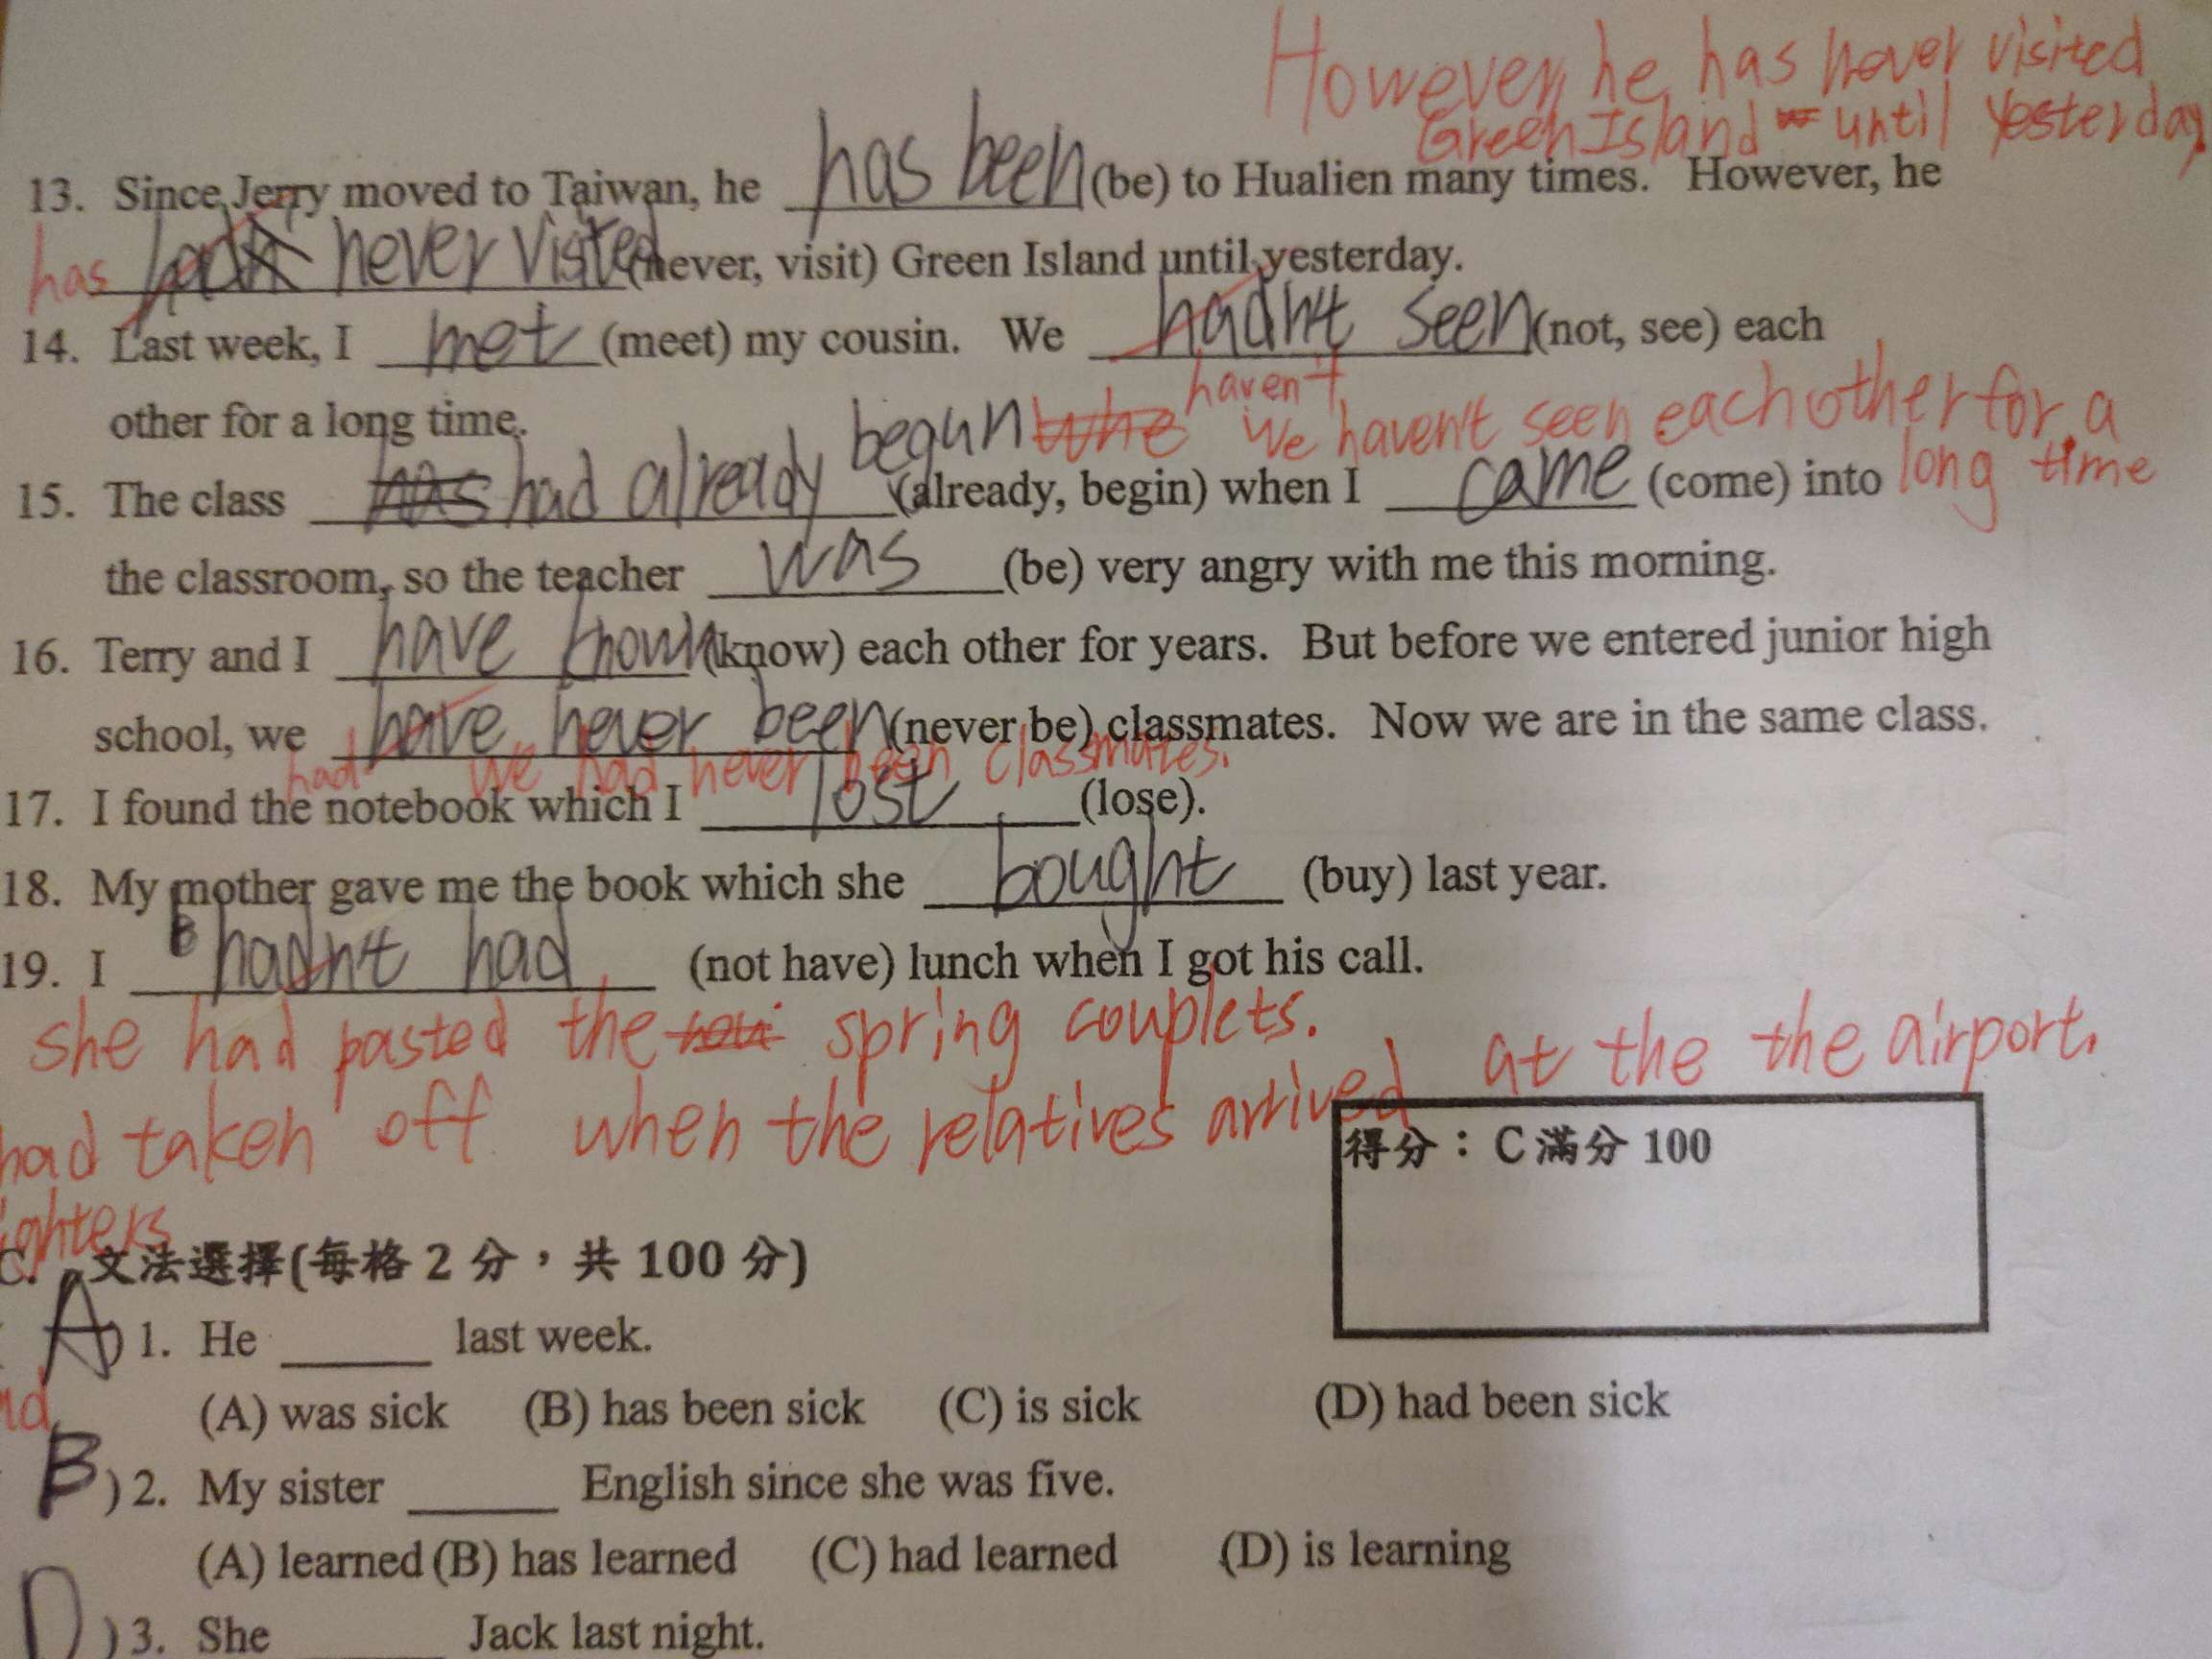 However, he has never visited
Green Island until yesterday.
13. Since Jerry moved to Taiwan, he has been (be) to Hualien many times. However, he
has never visited (never, visit) Green Island until yesterday.
14. Last week, I met (meet) my cousin. We hadn't seen (not, see) each
haven't
other for a long time. We haven't seen each other for a
long time
15. The class had already begun (already, begin) when I came (come) into
the classroom, so the teacher was (be) very angry with me this morning.
16. Terry and I have known (know) each other for years. But before we entered junior high
school, we have never been (never be) classmates. Now we are in the same class.
had We had never been classmates.
17. I found the notebook which I lost (lose).
18. My mother gave me the book which she bought (buy) last year.
19. I hadn't had (not have) lunch when I got his call.
she had pasted the spring couplets.
had taken off when the relatives arrived at the the airport.
ighters
得分：C滿分 100
C. 文法選擇(每格 2 分，共 100 分)
A) 1. He ______ last week.
(A) was sick (B) has been sick (C) is sick (D) had been sick
B) 2. My sister ______ English since she was five.
(A) learned (B) has learned (C) had learned (D) is learning
D) 3. She ______ Jack last night.